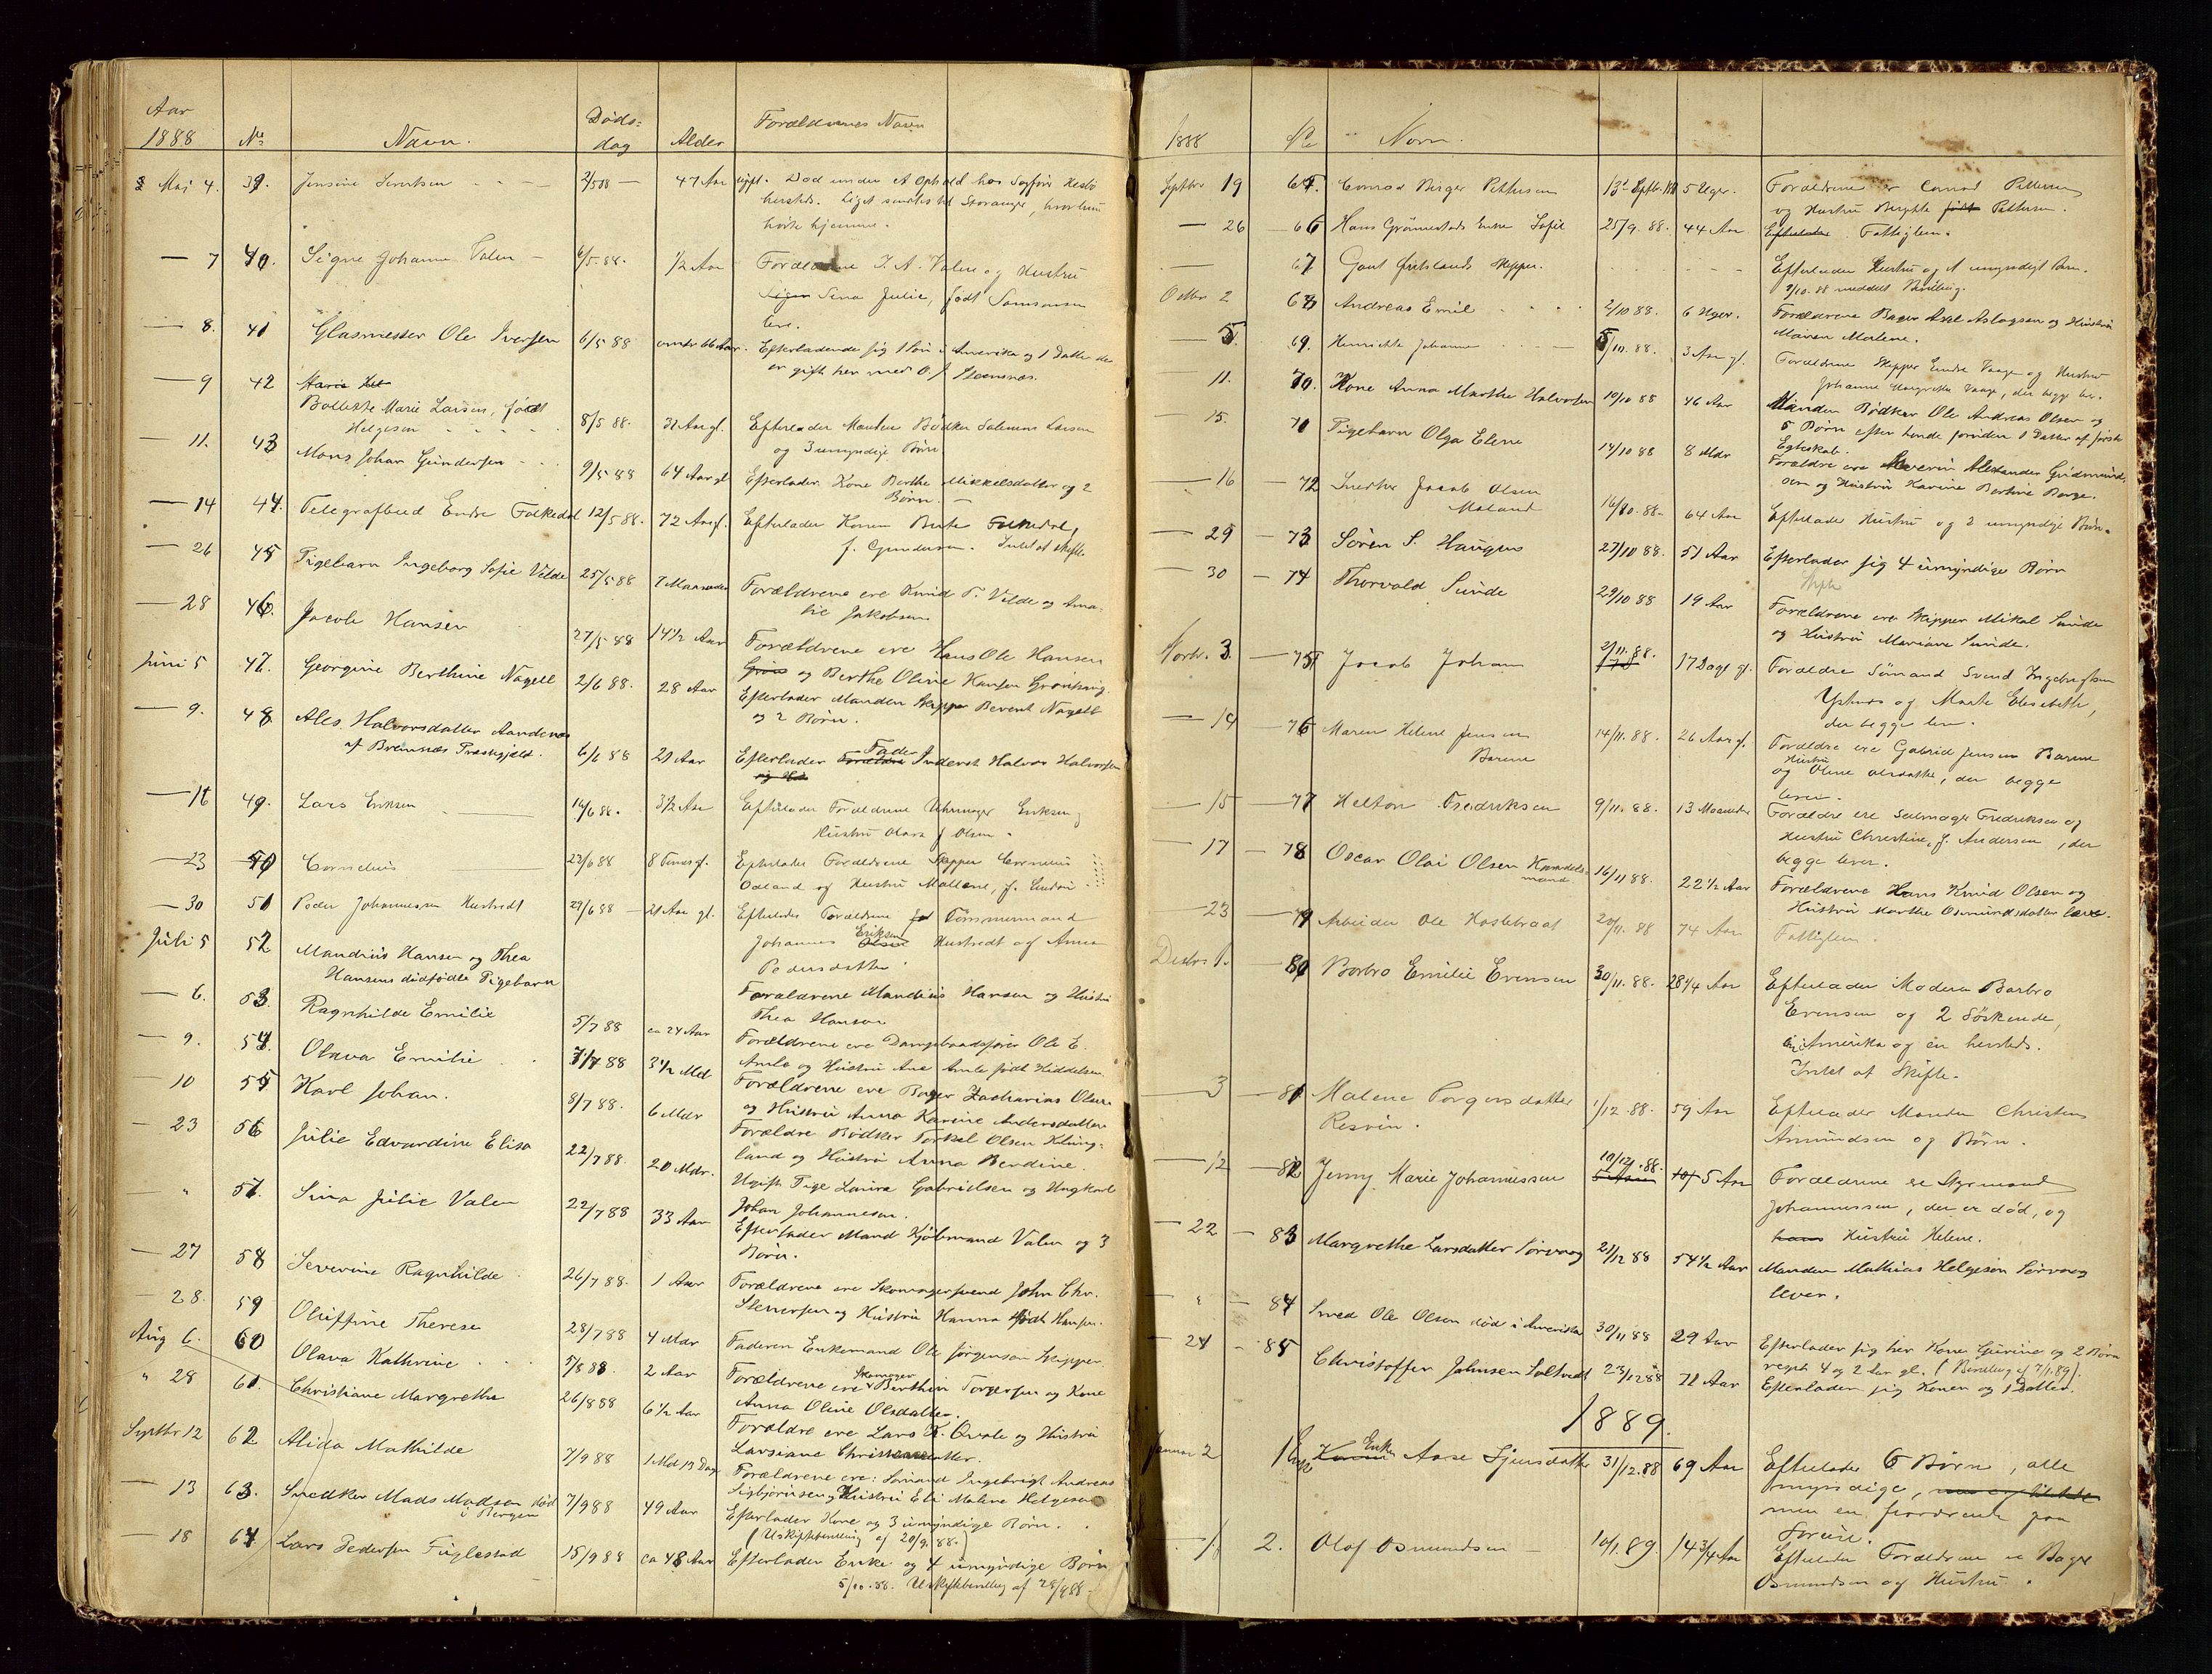 Aar
1888 No Navn. Døds= dag Alder Forældrenes Navn
Mai 4. 39. Jensine Sivertsen 2/5 88 47 Aar ugift. Død under et Ophold hos
hersteds. Liget sendes til Stavanger, hvor hun
hørte hjemme.
— 7 40. Signe Johanne Valen 6/5. 88. 1/2 Aar Forældrene J. A. Valen og Hustru
Sina Julie, født Samsonsen
leve.
— 8. 41 Glasmester Ole Iversen 6/5 88 omtr 66 Aar. Efterladende sig 1 Søn i Amerika og 1 Datter der
er gift her med O. J. Steensnæs.
— 9 42 Bollette Marie Larsen, født
Helgesen 8/5 88. 31 Aar gl. Efterlader Manden Bødker Salomon Larsen
og 3 umyndige Børn
— 11. 43 Mons Johan Gundersen 9/5 88 64 Aar gl Efterlader Kone Berthe Mikkelsdatter og 2
Børn.
— 14 44. Telegrafbud Endre Folkedal 12/5 88. 72 Aar gl. Efterlader Konen Berte Folkedal,
f. Gundersen. Intet at skifte
— 26 45 Pigebarn Ingeborg Sofie Velde 25/5 88 7 Maaneder Forældrene ere Knud T. Velde og Ama-
lie Jakobsen
— 28 46. Jacob Hansen 27/5 88 14 1/2 Aar Forældrene ere Hans Ole Hansen
og Berthe Oline Hansen
Juni 5 47. Georgine Berthine Nagell 2/6 88. 28 Aar Efterlader Manden Skipper Berent Nagell
og 2 Børn.
— 9. 48 Ales Halvorsdatter Aandenes
af Bremnæs Præstegjeld. 6/6 88 21 Aar Efterlader Fader Inderst Halvor Halvorsen
— 16 49. Lars Eriksen 16/6 88. 3 1/2 Aar Efterlader Forældrene Uhrmager Eriksen og
Hustru Olava f Olsen.
— 23 50 Cornelius 23/6 88 8 Timer gl. Efterlader Forældrene Skipper Cornelius
Odland og Hustru Mallene, f.
— 30 51 Peder Johannessen Hustredt 29/6 88 21 Aar gl. Efterlader Forældrene Tømmermand
Johannes Eriksen Hustredt og Anna
Pedersdatter
Juli 5 52 Mandius Hansen og Thea
Hansens dødfødte Pigebarn Forældrene Mandius Hansen og Hustru
Thea Hansen
— 6. 53. Ragnhilde Emilie 5/7 88 ca 24 Aar Forældrene ere Dampbaadsfører Ole E.
Amle og Hustru Ane Amle født Kiddelsen
— 9. 54. Olava Emilie 7/7 88 3 1/2 Md Forældrene ere Bager Zacharias Olsen
og Hustru Anna Karine Andersdatter
— 10 55 Karl Johan. 8/7 88. 6 Mdr Forældre Bødker Torkel Olsen Kling-
land og Hustru Anna Berdine.
— 23 56 Julie Edvardine Elisa 22/7 88. 20 Mdr. Ugift Pige Laura Gabrielsen og Ungkarl
Johan Johannesen.
" 57. Sina Julie Valen 22/7 88 33 Aar Efterlader Mand Kjøbmand Valen og 3
Børn.
— 27 58 Severine Ragnhilde 26/7 88. 1 Aar Forældrene ere Skomagersvend John Chr.
Stenersen og Hustru Hanna født Hansen.
— 28. 59 Oluffine Therese 28/7 88 4 Mdr Faderen Enkemand Ole Jørgensen Skipper
Aug 6. 60 Olava Kathrine 5/8 88 2 Aar Forældrene ere Skomager Berthin Torgersen og Kone
Anna Oline Olsdatter.
" 28 61. Christiane Margrethe 26/8 88 6 1/2 Aar Forældre ere Lars K. Qvale og Hustru
Larsiane
Septbr 12 62 Alida Mathilde 7/9 88 1 Md 19 Dage Forældrene ere: Sømand Ingebrigt Andreas
Sigbjørnsen og Hustru Eli Malene Helgesen
— 13 63. Snedker Mads Madsen død
i Bergen 7/9 88 49 Aar Efterlader Kone og 3 umyndige Børn.
(Uskiftebevilling af 20/9. 88.)
— 18 64 Lars Pedersen Fuglestad 15/9 88 ca 48 Aar Efterlader Enke og 4 umyndige Børn
5/10. 88. Uskiftebevilling af 28/9 88
1888 No Navn.
Septbr 19 65. Conrad Birger Pettersen 13d Septbr 88 5 Uger. Forældrene er Conrad Pettersen
og Hustru Pettersen.
— 26 — 66 Hans Grønnestads Enke Sofie 25/9. 88. 44 Aar Fattiglem.
— 67 Gaut Skipper. Efterlader Hustru og et umyndigt Barn.
9/10. 88 meddelt Bevilling.
Octbr 2 68 Andreas Emil 2/10 88. 6 Uger. Forældrene Bager Axel Aslagsen og Hustru
Maren Malene.
— 5. 69. Henriette Johanne 5/10. 88. 3 Aar gl. Forældrene Skipper Endre Vaage og Hustru
Johanne Margrethe Vaage, der begge lever.
— 11. 70. Kone Anna Marthe Halvorsen 10/10 88 46 Aar Manden Bødker Ole Andreas Olsen og
5 Børn efter hende foruden 1 Datter af første
Egteskab.
— 15. 71 Pigebarn Olga Elene 14/10 88 8 Mdr Forældre ere Severin Alexander Gudmund-
sen og Hustru Karine Bertine Berge.
— 16 — 72 Inderster Jacob Olsen
Moland 16/10. 88. 64 Aar Efterlader Hustru og 2 umyndige Børn.
— 29 — 73 Søren S. Haugen 27/10 88. 51 Aar Efterlader sig 4 umyndige Børn
— 30 — 74 Thorvald Sunde 29/10 88 19 Aar Forældrene ere Skipper Mikal Sunde
og Hustru Mariane Sunde.
Novbr. 3. — 75 Jacob Johan 2/11. 88. 17 Dage gl. Forældre Sømand Svend Ingebrigtsen
og Marte Elisabeth,
der begge lever.
— 14 — 76 Maren Helene Jensen
Barene 14/11. 88. 26 Aar gl. Forældre ere Gabriel Jensen Barene
og Hustru Oline Olsdatter, der begge
lever.
— 15 — 77 Helton Fredriksen 9/11. 88. 13 Maaneder Forældre ere Seilmager Fredriksen og
Hustru Christine, f. Andersen, der
begge lever.
— 17 — 78 Oscar Olai Olsen Handels-
mand 16/11 88. 22 1/2 Aar Forældrene Hans Knud Olsen og
Hustru Marthe Osmundsdatter lever.
— 23 — 79 Arbeider Ole Haslebraat 20/11. 88 74 Aar Fattiglem.
Decbr 1. — 80 Barbro Emilie Evensen 30/11. 88. 28 1/4 Aar Efterlader Moderen Barbro
Evensen og 2 Søskende,
en i Amerika og en hersteds.
Intet at Skifte.
— 3 — 81 Malene Torgersdatter
Risøen. 1/12. 88. 59 Aar Efterlader Manden Christen
Amundsen og Børn.
— 12 — 82 Jenny Marie Johannessen 10/12. 88. 5 Aar Forældrene er Styrmand
Johannessen, der er død, og
Hustru Helene.
— 22 — 83 Margrethe Larsdatter Sørvaag 21/12 88 54 1/2 Aar Manden Mathias Helgesen Sørvaag
lever.
" — 84 Smed Ole Olsen død i Amerika 30/11 88 29 Aar Efterlader sig her Kone Gurine og 2 Børn
respt. 4 og 2 Aar gl. (Bevilling af 7/1.89).
— 24 — 85 Christoffer Johnsen Saltvedt 23/12 88 71 Aar Efterlader sig Konen og 1 Datter.
1889.
Januar 2 1 Enke Aase Sjursdatter 31/12. 88 69 Aar Efterlader 6 Børn, alle
myndige,
men en fraværende paa
Foreise.
2. Olaf Osmundsen 10/1. 89. 14 3/4 Aar Efterlader Forældrene er Bager
Osmundsen og Hustru.